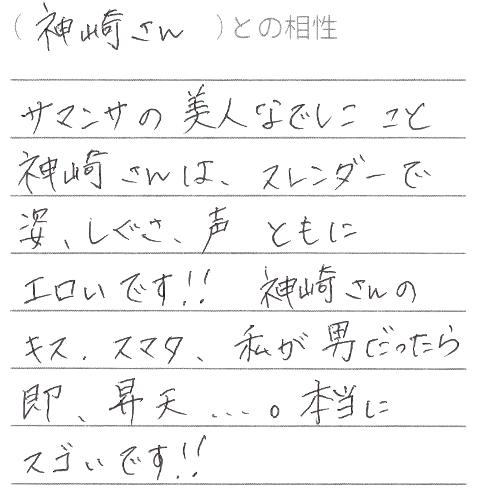 （ 神崎さん ）との相性
サマンサの 美人なでしこ こと
神崎さんは、スレンダーで
姿、しぐさ、声 ともに
エロいです!! 神崎さんの
キス、スマタ、私が男だったら
即、昇天…。本当に
スゴいです!!